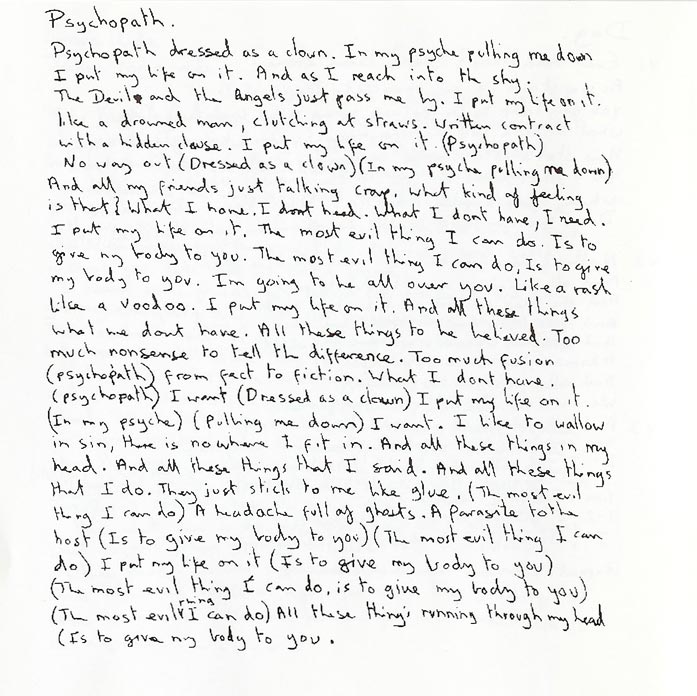 Psychopath.
Psychopath dressed as a clown. In my psyche pulling me down
I put my life on it. And as I reach into the sky.
The Devils and the Angels just pass me by. I put my life on it.
like a drowned man, clutching at straws. Written contract
with a hidden clause. I put my life on it. (Psychopath)
No way out (Dressed as a clown)(In my psyche pulling me down)
And all my friends just talking crap, what kind of feeling
is that? What I have. I dont need. What I dont have, I need.
I put my life on it. The most evil thing I can do. Is to
give my body to you. The most evil thing I can do, Is to give
my body to you. Im going to be all over you. Like a rash
Like a voodoo. I put my life on it. And all these things
what we dont have. All these things to be believed. Too
much nonsense to tell th difference. Too much fusion
(psychopath) from fact to fiction. What I dont have.
(psychopath) I want (Dressed as a clown) I put my life on it.
(In my psyche) (Pulling me down) I want. I like to wallow
in sin, there is nowhere I fit in. And all these things in my
head. And all these things that I said. And all these things
that I do. They just stick to me like glue. (The most evil
thing I can do) A headache full of ghosts. A Parasite to the
host (Is to give my body to you)(The most evil thing I can
do) I put my life on it (Is to give my body to you)
(The most evil thing I can do, is to give my body to you)
(The most evil thing I can do) All these thing's running through my head
(Is to give my body to you.